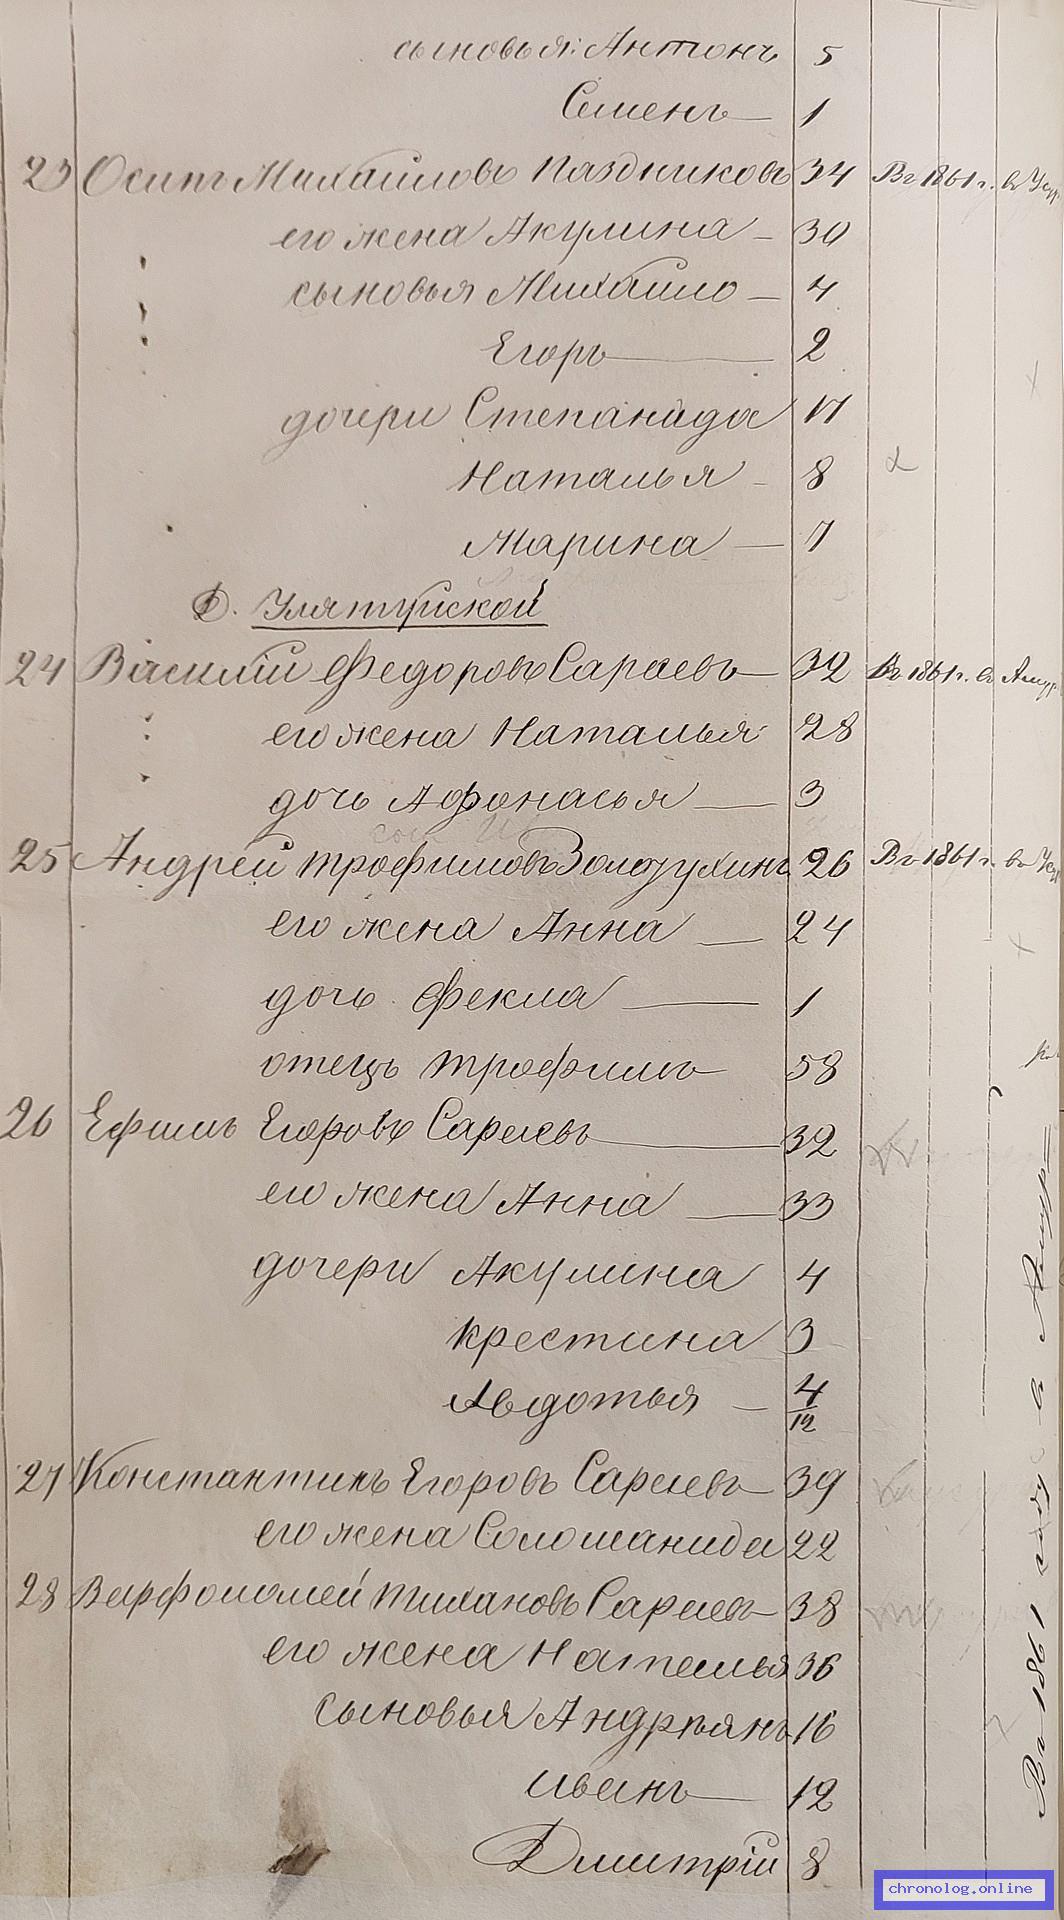 сыновья: Антонъ 5
Семенъ — 1
23 Осипъ Михайловъ Паздниковъ 34 Въ 1861 г. въ Усу
его жена Акулина — 30
сыновья Михайло — 4
Егоръ — 2
дочери Степанида 17
Наталья — 8
Марина — 7
Д. Улятуйской
24 Василій Федоровъ Сараевъ — 32 Въ 1861 г. въ Амур
его жена Наталья 28
дочь Афонасья — 3
25 Андрей Трофимовъ Золотухинъ 26 Въ 1861 г. въ
его жена Анна — 24
дочь Фекла — 1
отецъ Трофимъ 58
26 Ефимъ Егоровъ Сараевъ — 32
его жена Анна — 33
дочери Акулина 4
Крестина 3
Авдотья — 4/12
27 Константинъ Егоровъ Сараевъ — 39
его жена Соломанида 22
28 Варфоломей Тихановъ Сараевъ — 38
его жена Наталья 36
сыновья Андріянъ 16
Иванъ — 12
Дмитрій 8
Въ 1861 году въ Амур=
chronolog.online